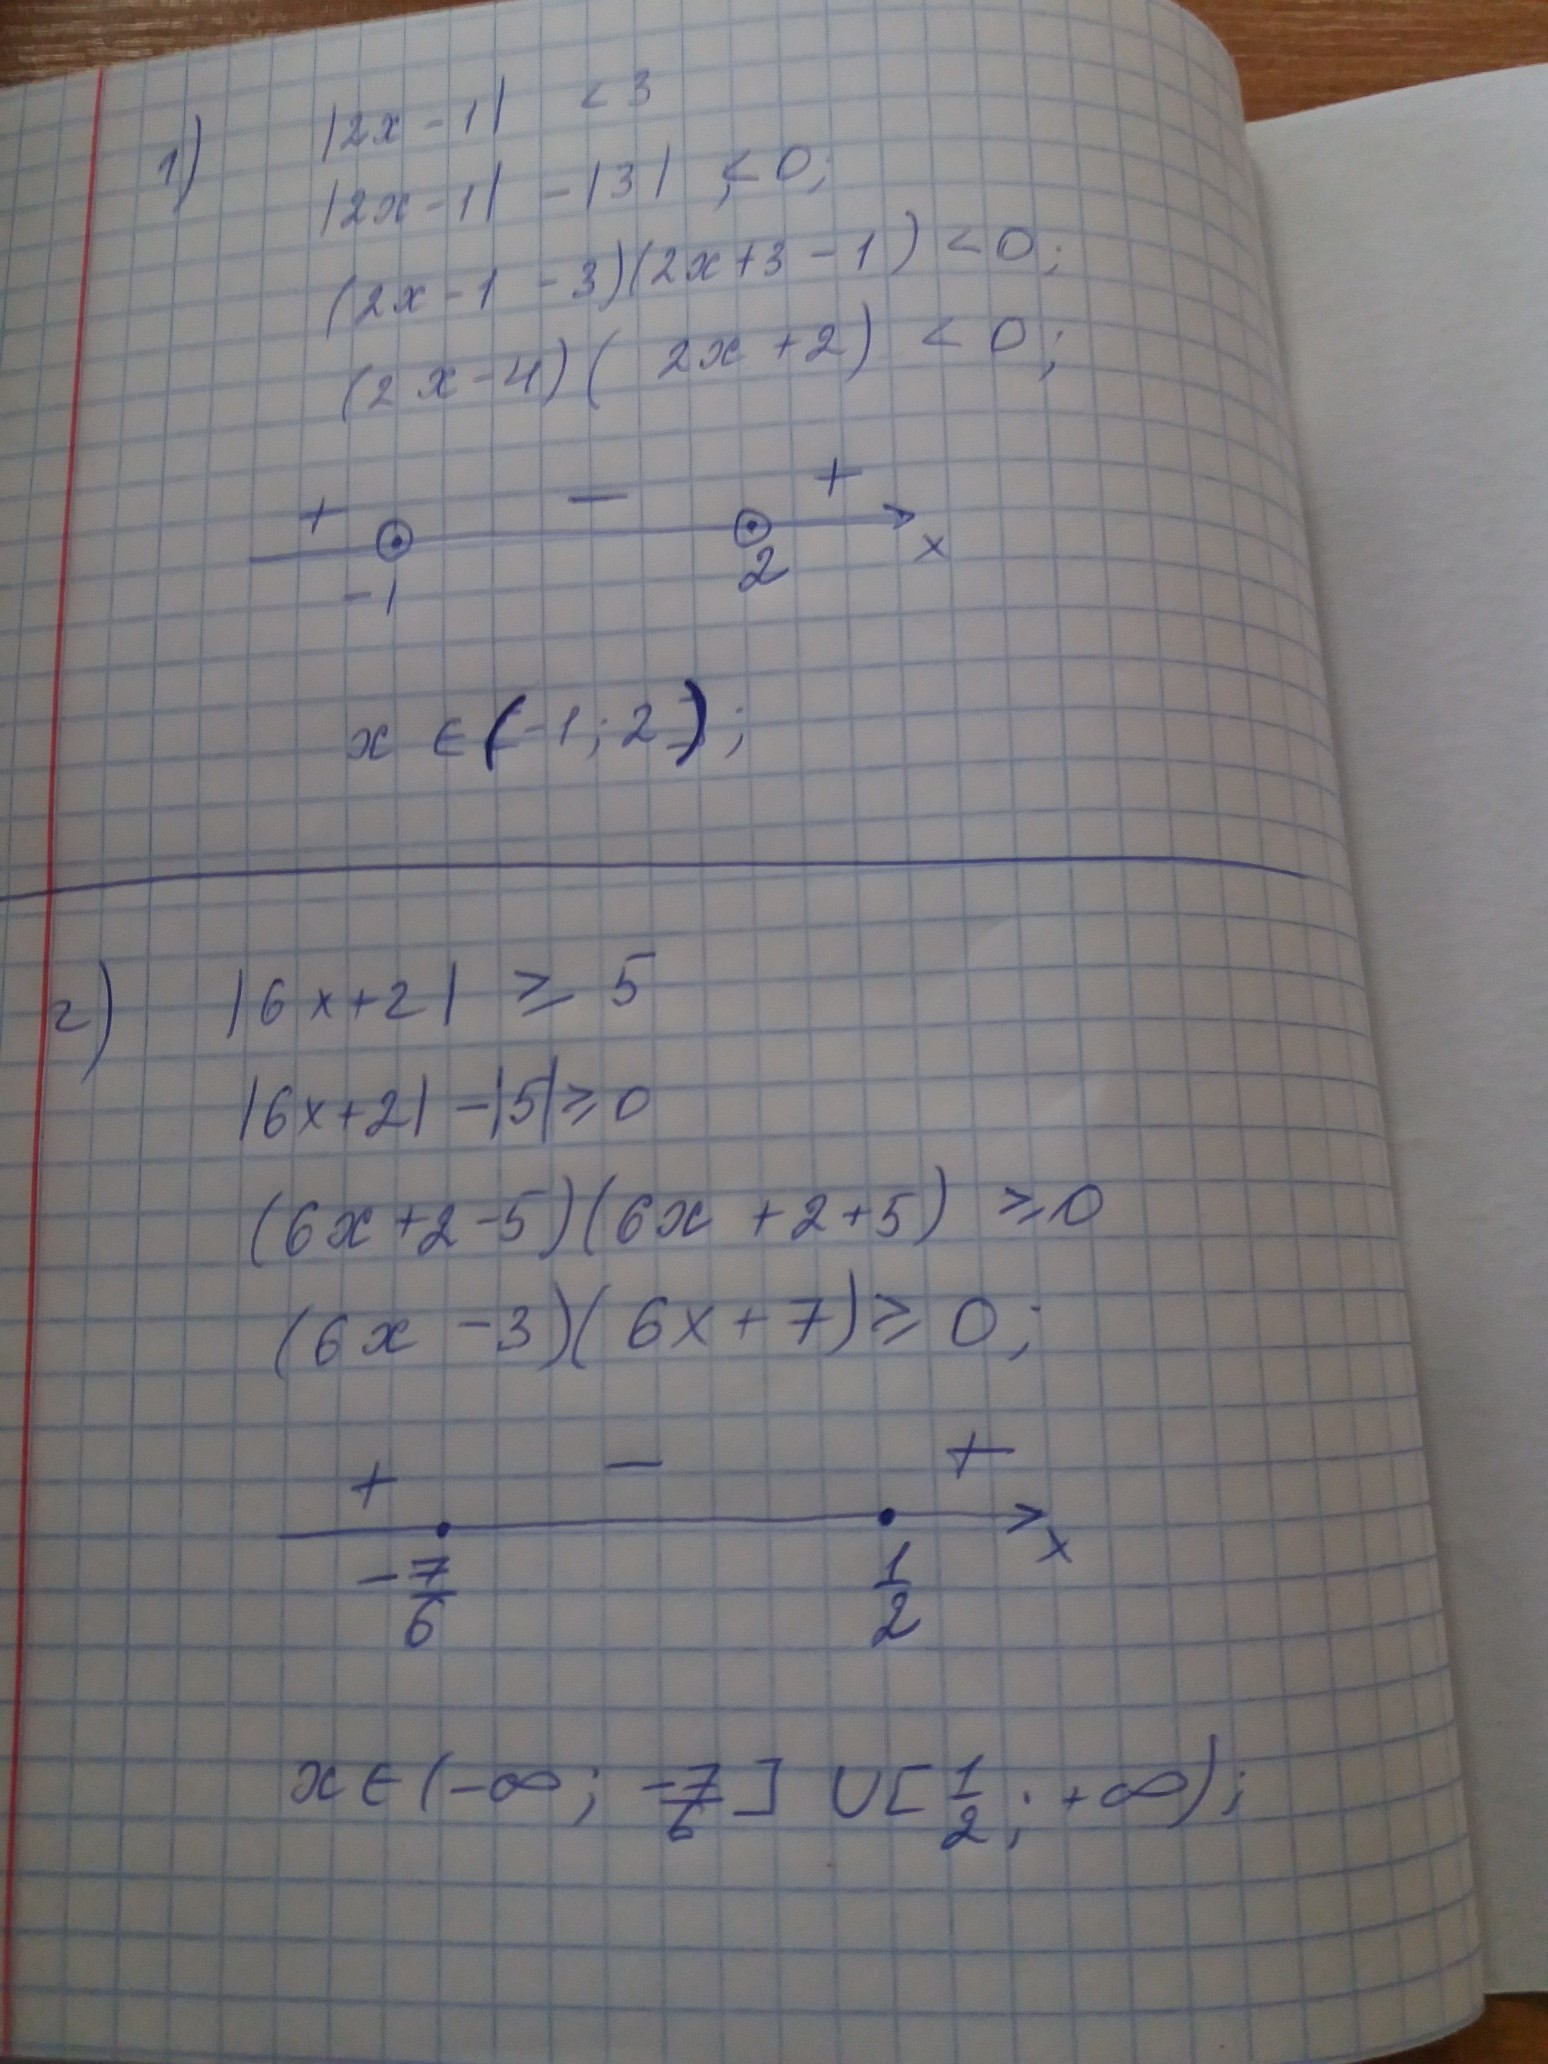 1) |2x - 1| < 3
|2x - 1| - |3| < 0;
(2x - 1 - 3)(2x + 3 - 1) < 0;
(2x - 4)( 2x + 2) < 0;
+ - +
-1 2 x
x ∈ (-1; 2);
2) |6x + 2| ≥ 5
|6x + 2| - |5| ≥ 0
(6x + 2 - 5)(6x + 2 + 5) ≥ 0
(6x - 3)(6x + 7) ≥ 0;
+ - +
-7/6 1/2 x
x ∈ (-∞; -7/6] ∪ [1/2; +∞);